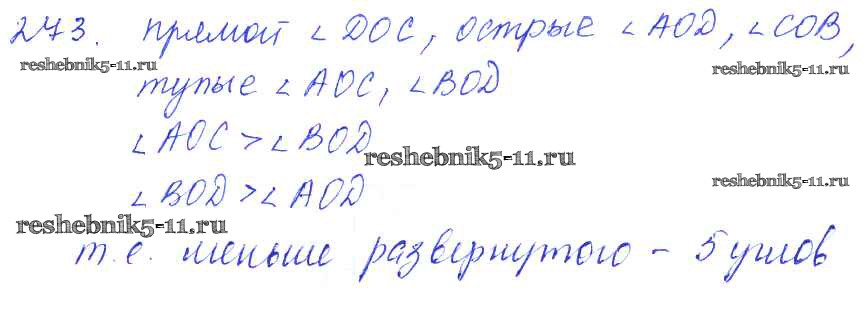 273. прямой ∠DOC, острые ∠AOD, ∠COB,
reshebnik5-11.ru
reshebnik5-11.ru
тупые ∠AOC, ∠BOD
∠AOC > ∠BOD
reshebnik5-11.ru
∠BOD > ∠AOD
reshebnik5-11.ru
reshebnik5-11.ru
т.е. меньше развернутого - 5 углов